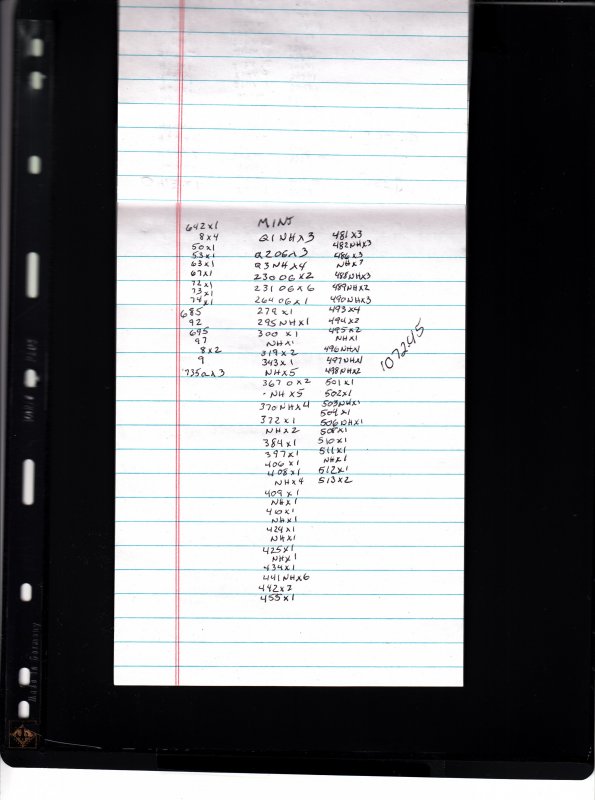 642x1
8x4
50x1
53x1
63x1
67x1
72x1
73x1
74x1
685
92
695
97
8x2
9
735a x3
MINT
Q1NHx3
Q2OGx3
Q3NHx4
230OGx2
231OGx6
264OGx1
279x1
295NHx1
300x1
NHx1
319x2
343x1
NHx5
367Ox2
NHx5
370NHx4
372x1
NHx2
384x1
397x1
406x1
408x1
NHx4
409x1
NHx1
410x1
NHx1
424x1
NHx1
425x1
NHx1
434x1
441NHx6
442x2
455x1
481x3
482NHx3
486x3
NHx7
488NHx3
489NHx2
490NHx3
493x4
494x2
495x2
NHx1
496NHx1
497NHx1
498NHx2
501x1
502x1
503NHx1
504x1
506NHx1
508x1
510x1
511x1
NHx1
512x1
513x2
107245
Made in Germany